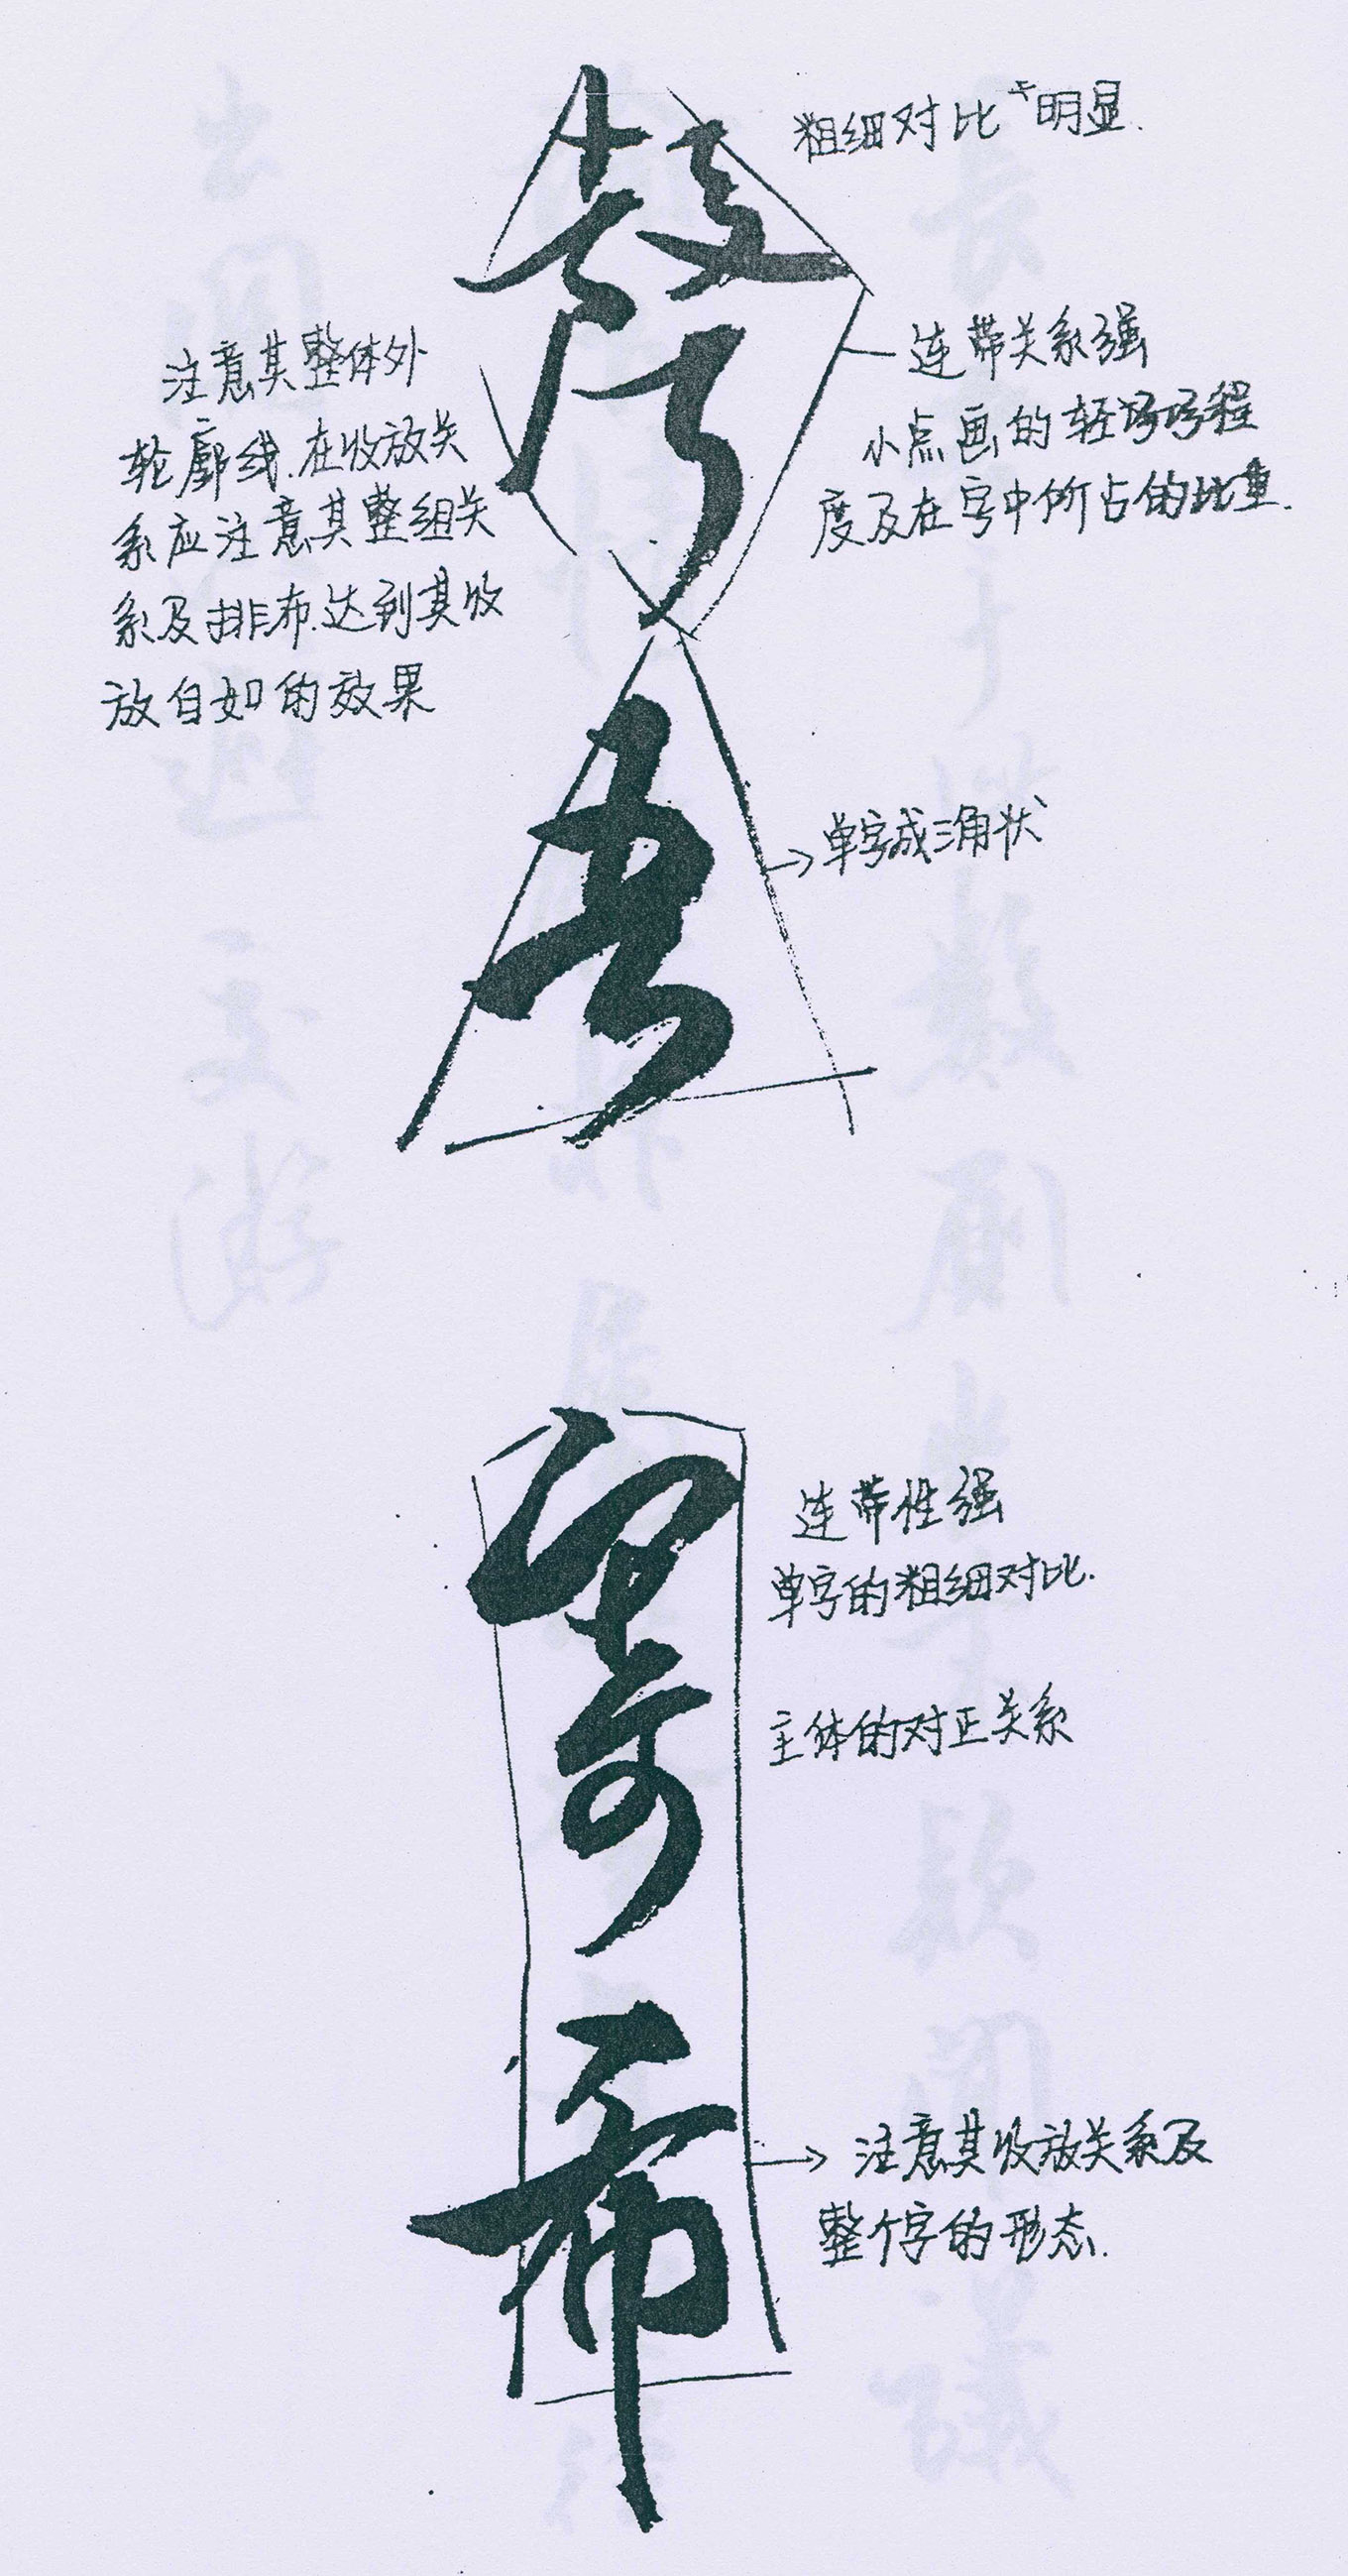 粗细对比十明显.
连带关系强
小点画的轻
度及在字中所占的比重.
注意其整体外
轮廓线.在收放关
系应注意其整组关
系及排布.达到其收
放自如的效果
单字成三角状
连带性强
单字的粗细对比.
主体的对正关系
奇
布
注意其收放关系及
整个字的形态.